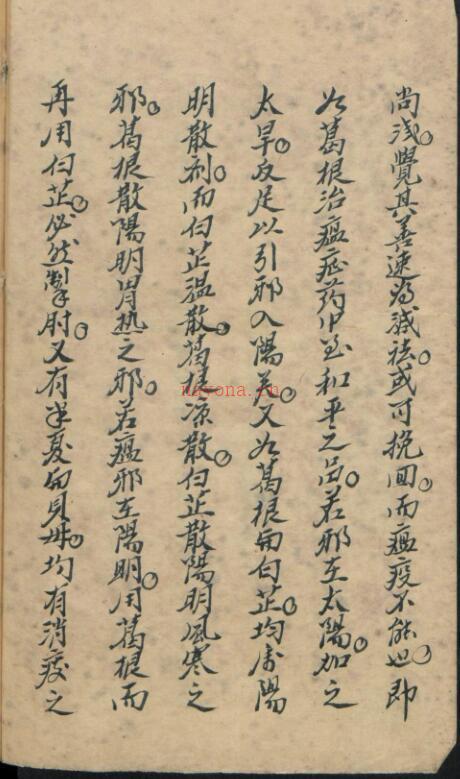 尚浅。覺其善速为減祛。或可挽回。而瘟疫不能也。即
如葛根治瘟症药中至和平之品。若邪在太陽。加之
太早。反足以引邪入陽。又如葛根与白芷。均属陽
明散剂。而白芷温散。葛根凉散。白芷散陽明風寒之
邪。葛根散陽明胃热之邪。若瘟邪在陽明。用葛根而
再用白芷。必然掣肘。又有半夏与貝母。均有消痰之
nayona.cn